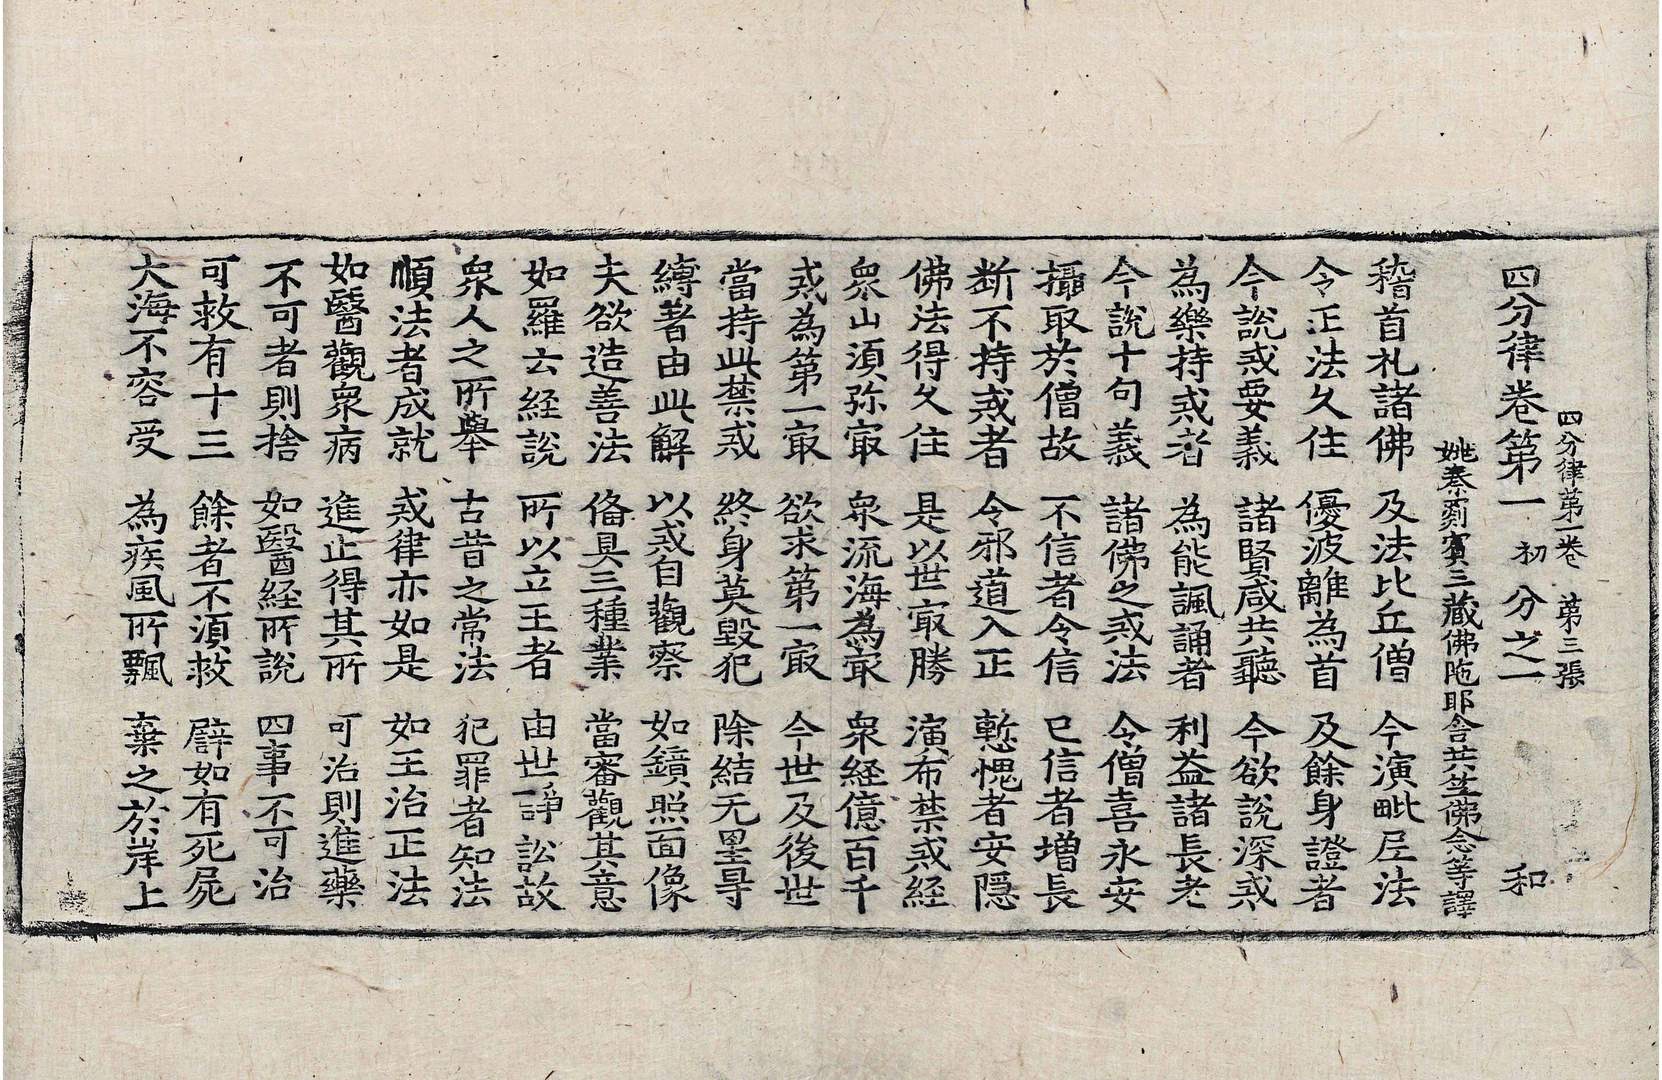 四分律第一卷 第三張
四分律卷第一 初分之一 和
姚秦罽賔三藏佛陁耶舍共竺佛念等譯
稽首礼諸佛 及法比丘僧 今演毗尼法
令正法久住 優波離為首 及餘身證者
今說戒要義 諸賢咸共聽 今欲說深戒
為樂持戒者 為能諷誦者 利益諸長老
今說十句義 諸佛之戒法 令僧喜永安
攝取於僧故 不信者令信 已信者增長
断不持戒者 令邪道入正 慙愧者安隱
佛法得久住 是以世㝡勝 演布禁戒経
衆山湏弥㝡 衆流海為㝡 衆経億百千
戒為第一㝡 欲求第一㝡 今世及後世
當持此禁戒 終身莫毀犯 除結无罣㝵
縛著由此解 以戒自觀察 如鏡照面像
夫欲造善法 俻具三種業 當審觀其意
如羅云経說 所以立王者 由世諍訟故
衆人之所舉 古昔之常法 犯罪者知法
順法者成就 戒律亦如是 如王治正法
如醫觀衆病 進止得其所 可治則進藥
不可者則捨 如醫経所說 四事不可治
可救有十三 餘者不湏救 譬如有死屍
大海不容受 為疾風所飄 棄之於岸上